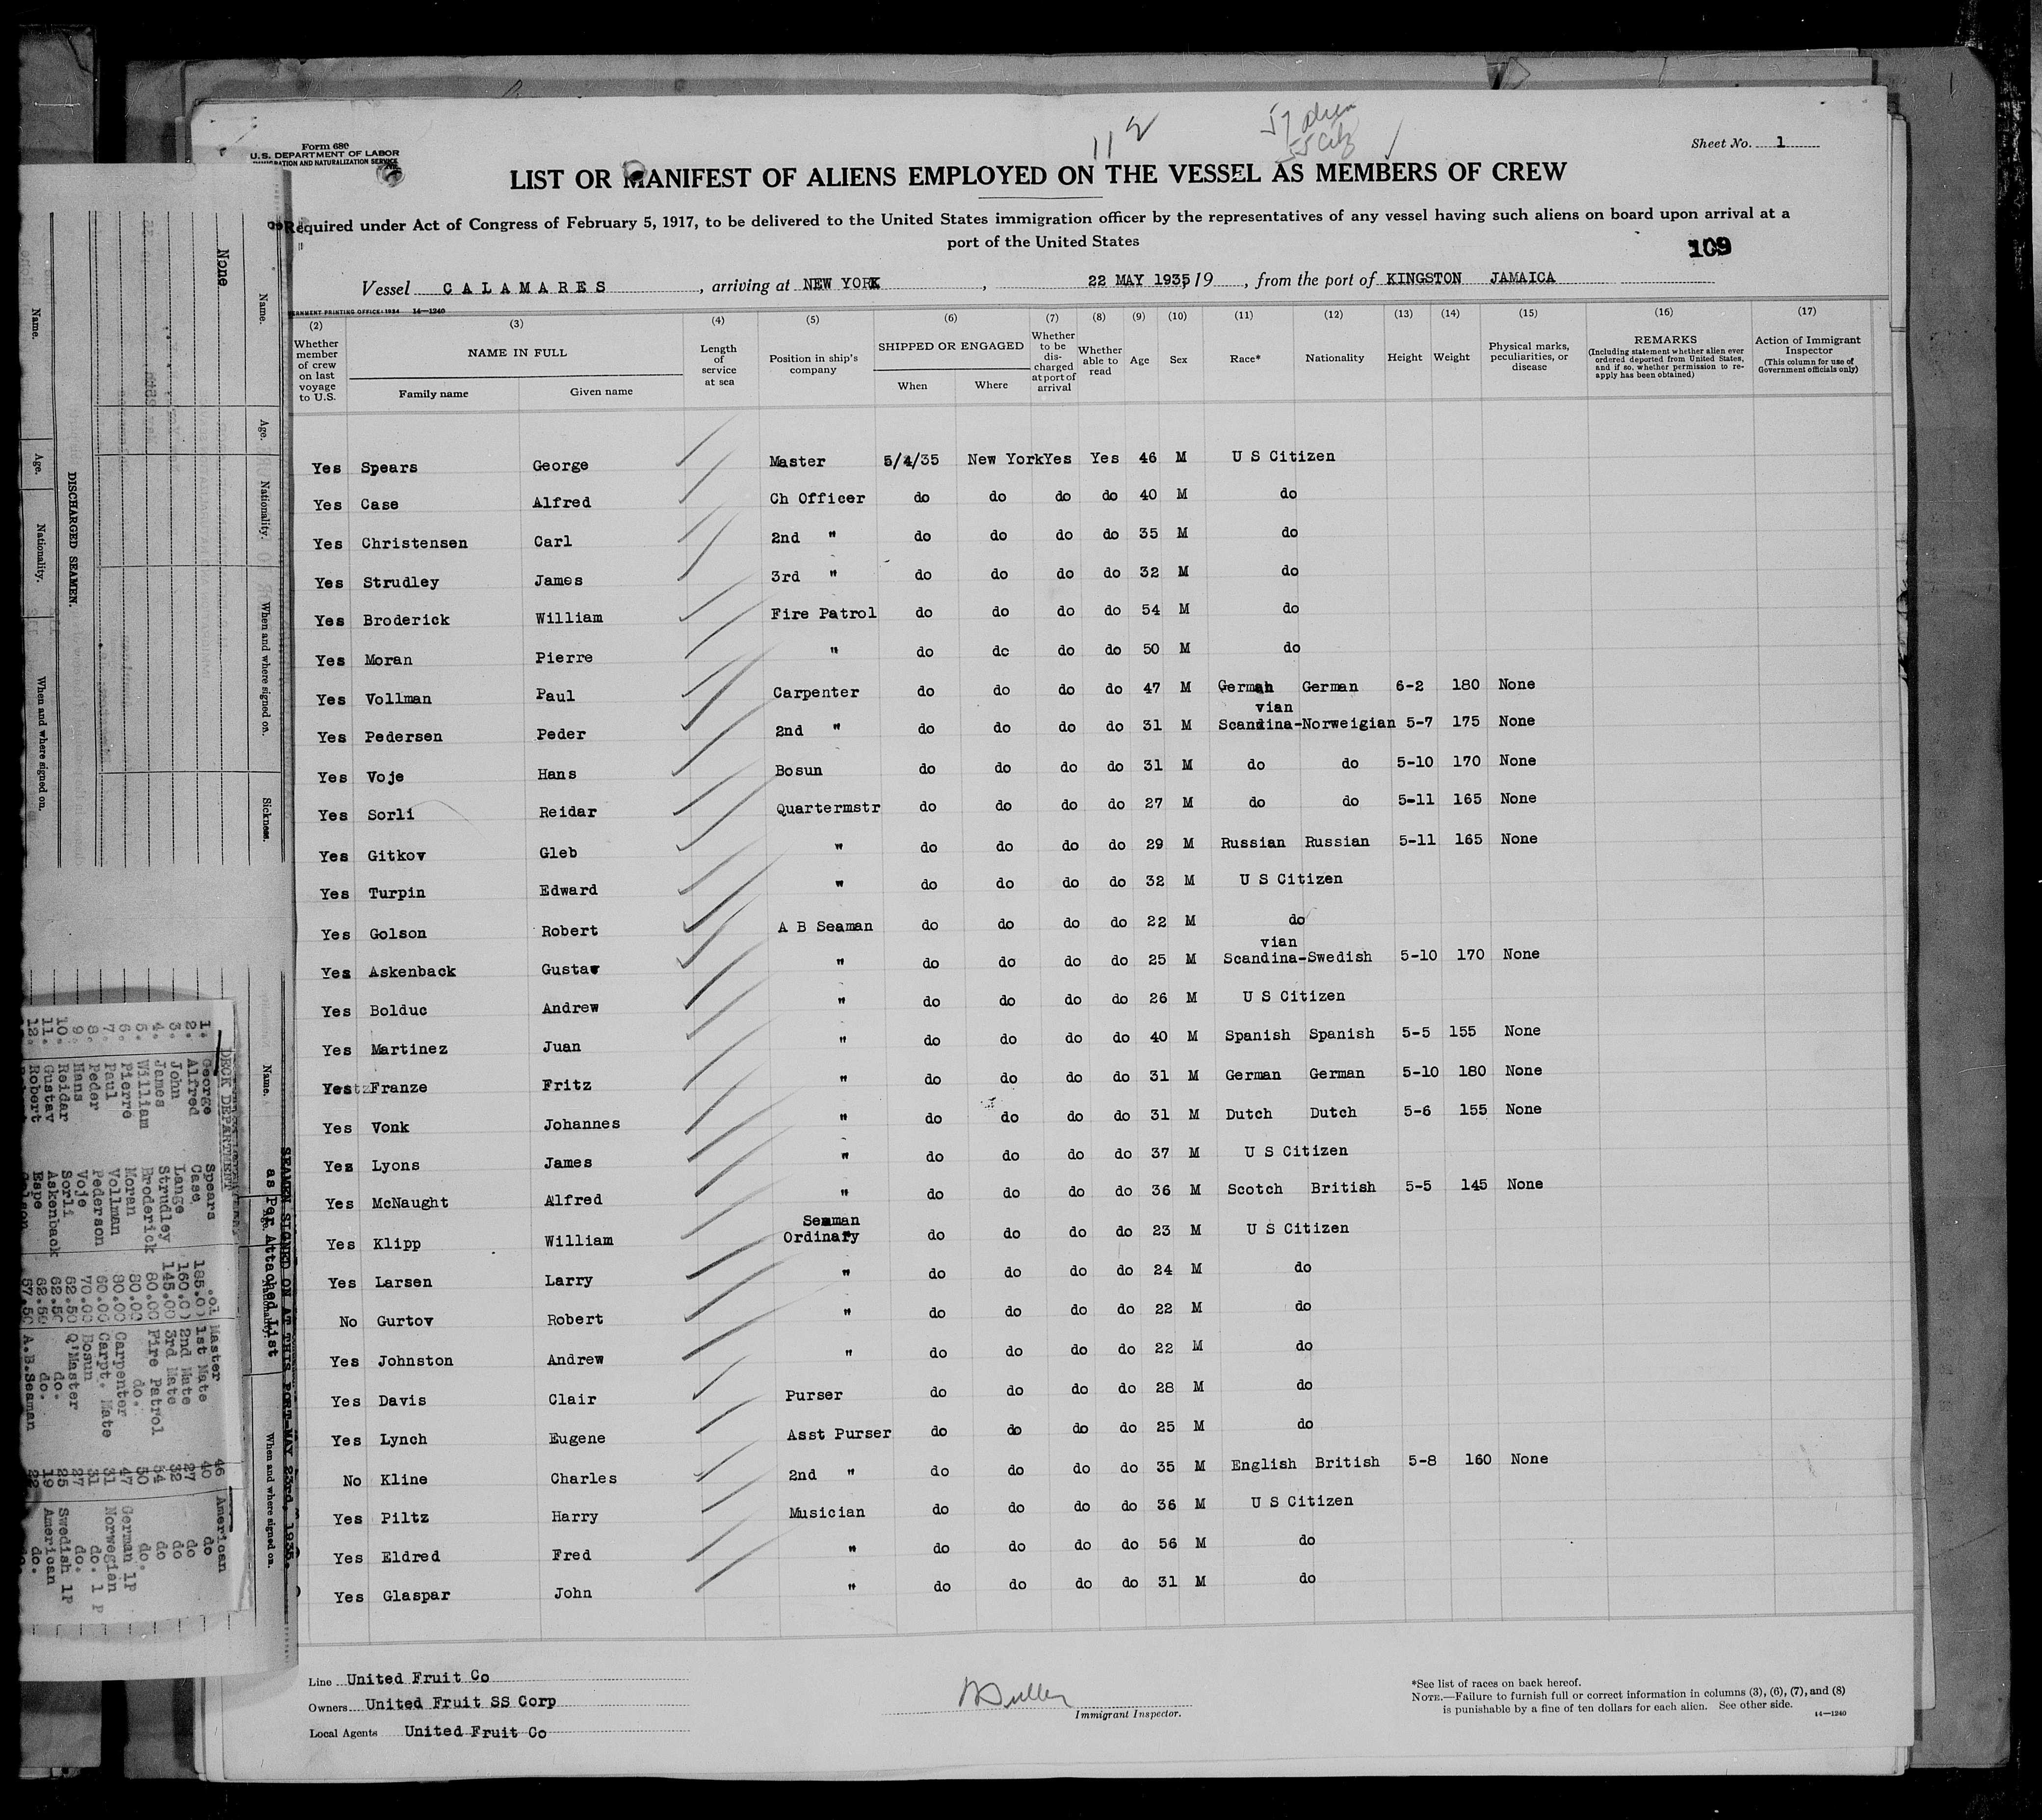 Form 680
U.S. DEPARTMENT OF LABOR
IMMIGRATION AND NATURALIZATION SERVICE
112
57 alien
55 Citz
Sheet No. 1
LIST OR MANIFEST OF ALIENS EMPLOYED ON THE VESSEL AS MEMBERS OF CREW
Required under Act of Congress of February 5, 1917, to be delivered to the United States immigration officer by the representatives of any vessel having such aliens on board upon arrival at a
port of the United States
109
Vessel CALAMARES, arriving at NEW YORK, 22 MAY 1935, 19, from the port of KINGSTON JAMAICA
GOVERNMENT PRINTING OFFICE: 1934 14—1240
(2) (3) (4) (5) (6) (7) (8) (9) (10) (11) (12) (13) (14) (15) (16) (17)
Whether member of crew on last voyage to U.S. NAME IN FULL Family name Given name Length of service at sea Position in ship's company SHIPPED OR ENGAGED When Where Whether to be discharged at port of arrival Whether able to read Age Sex Race* Nationality Height Weight Physical marks, peculiarities, or disease REMARKS (Including statement whether alien ever ordered deported from United States, and if so, whether permission to re-apply has been obtained) Action of Immigrant Inspector (This column for use of Government officials only)
Yes Spears George Master 5/4/35 New York Yes Yes 46 M U S Citizen
Yes Case Alfred Ch Officer do do do do 40 M do
Yes Christensen Carl 2nd " do do do do 35 M do
Yes Strudley James 3rd " do do do do 32 M do
Yes Broderick William Fire Patrol do do do do 54 M do
Yes Moran Pierre " do dc do do 50 M do
Yes Vollman Paul Carpenter do do do do 47 M German German 6-2 180 None
vian
Yes Pedersen Peder 2nd " do do do do 31 M Scandina-Norweigian 5-7 175 None
Yes Voje Hans Bosun do do do do 31 M do do 5-10 170 None
Yes Sorli Reidar Quartermstr do do do do 27 M do do 5-11 165 None
Yes Gitkov Gleb " do do do do 29 M Russian Russian 5-11 165 None
Yes Turpin Edward " do do do do 32 M U S Citizen
Yes Golson Robert A B Seaman do do do do 22 M do
vian
Yes Askenback Gustav " do do do do 25 M Scandina-Swedish 5-10 170 None
Yes Bolduc Andrew " do do do do 26 M U S Citizen
Yes Martinez Juan " do do do do 40 M Spanish Spanish 5-5 155 None
Yes Franze Fritz " do do do do 31 M German German 5-10 180 None
Yes Vonk Johannes " do do do do 31 M Dutch Dutch 5-6 155 None
Yes Lyons James " do do do do 37 M U S Citizen
Yes McNaught Alfred " do do do do 36 M Scotch British 5-5 145 None
Seaman
Yes Klipp William Ordinary do do do do 23 M U S Citizen
Yes Larsen Larry " do do do do 24 M do
No Gurtov Robert " do do do do 22 M do
Yes Johnston Andrew " do do do do 22 M do
Yes Davis Clair Purser do do do do 28 M do
Yes Lynch Eugene Asst Purser do do do do 25 M do
No Kline Charles 2nd " do do do do 35 M English British 5-8 160 None
Yes Piltz Harry Musician do do do do 36 M U S Citizen
Yes Eldred Fred " do do do do 56 M do
Yes Glaspar John " do do do do 31 M do
Line United Fruit Co
Owners United Fruit SS Corp
Local Agents United Fruit Co
Immigrant Inspector.
*See list of races on back hereof.
NOTE.—Failure to furnish full or correct information in columns (3), (6), (7), and (8)
is punishable by a fine of ten dollars for each alien. See other side.
14—1240
None
Name. Age. Nationality. When and where signed on. Sickness.
DISCHARGED SEAMEN.
Name. Age. Nationality. When and where signed on.
SEAMEN SIGNED ON AT THIS PORT-MAY 23rd, 1935.
as Per Attached List
Name. Age. Nationality. When and where signed on.
DECK DEPARTMENT
1. George Spears .01 Master 46 American
2. Alfred Case 185.00 1st Mate 40 do
3. John Lange 160.00 2nd Mate 27 do
4. James Strudley 145.00 3rd Mate 32 do
5. William Broderick 80.00 Fire Patrol 54 do
6. Pierre Moran 80.00 do. 50 do.
7. Paul Vollman 80.00 Carpenter 47 German 1P
8. Peder Pederson 60.00 Carpt. Mate 31 Norwegian
9. Hans Voje 70.00 Bosun 31 do. 1 P
10. Reidar Sorli 62.50 Q'Master 27 do.
11. Gustav Askenback 62.50 do. 25 Swedish 1P
12. Robert Espe 62.50 do. 19 American
57.50 A.B.Seaman 22 do.